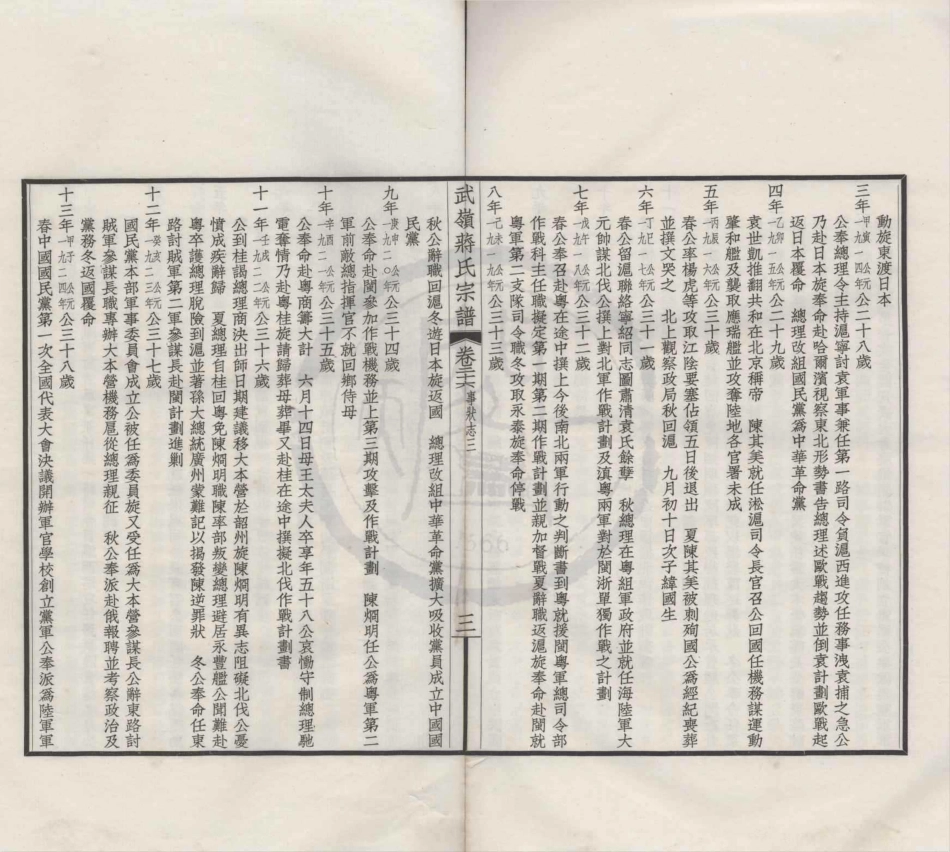 動旋東渡日本
三年甲寅公元一九一四年公二十八歲
公奉總理令主持滬寧討袁軍事兼任第一路司令負滬西進攻任務事洩袁捕之急公
乃赴日本旋奉命赴哈爾濱視察東北形勢書告總理述歐戰趨勢並倒袁計劃歐戰起
返日本覆命 總理改組國民黨為中華革命黨
四年乙卯公元一九一五年公二十九歲
袁世凱推翻共和在北京稱帝 陳其美就任淞滬司令長官召公回國任機務謀運動
肇和艦及襲取應瑞艦並攻奪陸地各官署未成
五年丙辰公元一九一六年公三十歲
春公率楊虎等攻取江陰要塞佔領五日後退出 夏陳其美被刺殉國公為經紀喪葬
並撰文哭之 北上觀察政局秋回滬 九月初十日次子緯國生
六年丁巳公元一九一七年公三十一歲
春公留滬聯絡寧紹同志圖肅清袁氏餘孽 秋總理在粵組軍政府並就任海陸軍大
元帥謀北伐公撰上對北軍作戰計劃及滇粵兩軍對於閩浙單獨作戰之計劃
七年戊午公元一九一八年公三十二歲
春公奉召赴粵在途中撰上今後南北兩軍行動之判斷書到粵就援閩粵軍總司令部
作戰科主任職擬定第一期第二期作戰計劃並親加督戰夏辭職返滬旋奉命赴閩就
粵軍第二支隊司令職冬攻取永泰旋奉命停戰
八年己未公元一九一九年公三十三歲
武嶺蔣氏宗譜 卷三十六 事狀志三 三
秋公辭職回滬冬遊日本旋返國 總理改組中華革命黨擴大吸收黨員成立中國國
民黨
九年庚申公元一九二〇年公三十四歲
公奉命赴閩參加作戰機務並上第三期攻擊及作戰計劃 陳烱明任公為粵軍第二
軍前敵總指揮官不就回鄉侍母
十年辛酉公元一九二一年公三十五歲
公奉命赴粵商籌大計 六月十四日母王太夫人卒享年五十八公哀慟守制總理馳
電奪情乃赴粵桂旋請歸葬母葬畢又赴桂在途中撰擬北伐作戰計劃書
十一年壬戌公元一九二二年公三十六歲
公到桂謁總理商決出師日期建議移大本營於韶州旋陳烱明有異志阻礙北伐公憂
憤成疾辭歸 夏總理自桂回粵免陳烱明職陳率部叛變總理避居永豐艦公聞難赴
粵卒護總理脫險到滬並著孫大總統廣州蒙難記以揭發陳逆罪狀 冬公奉命任東
路討賊軍第二軍參謀長赴閩計劃進剿
十二年癸亥公元一九二三年公三十七歲
國民黨本部軍事委員會成立公被任為委員旋又受任為大本營參謀長公辭東路討
賊軍參謀長職專辦大本營機務扈從總理親征 秋公奉派赴俄報聘並考察政治及
黨務冬返國覆命
十三年甲子公元一九二四年公三十八歲
春中國國民黨第一次全國代表大會決議開辦軍官學校創立黨軍公奉派為陸軍軍